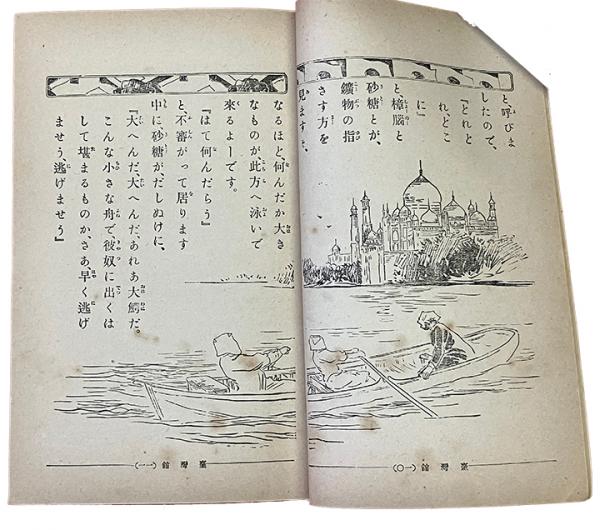 と呼びま
したので、
『どれと
れ、どこ
に』
と、樟脳と
砂糖とが、
鑛物の指
さす方を
見ますと、
臺灣館 (一〇)
なるほど、何んだか大き
なものが此方へ泳いで
來るよーです。
『はて何んだらう』
と、不審がつて居ります
中に砂糖が、だしぬけに、
『大へんだ、大へんだ、あれあ大鰐だ。
こんな小さな舟で彼奴に出くは
して堪まるものか、さあ、早く逃げ
ませう、逃げませう』
臺灣館 (一一)